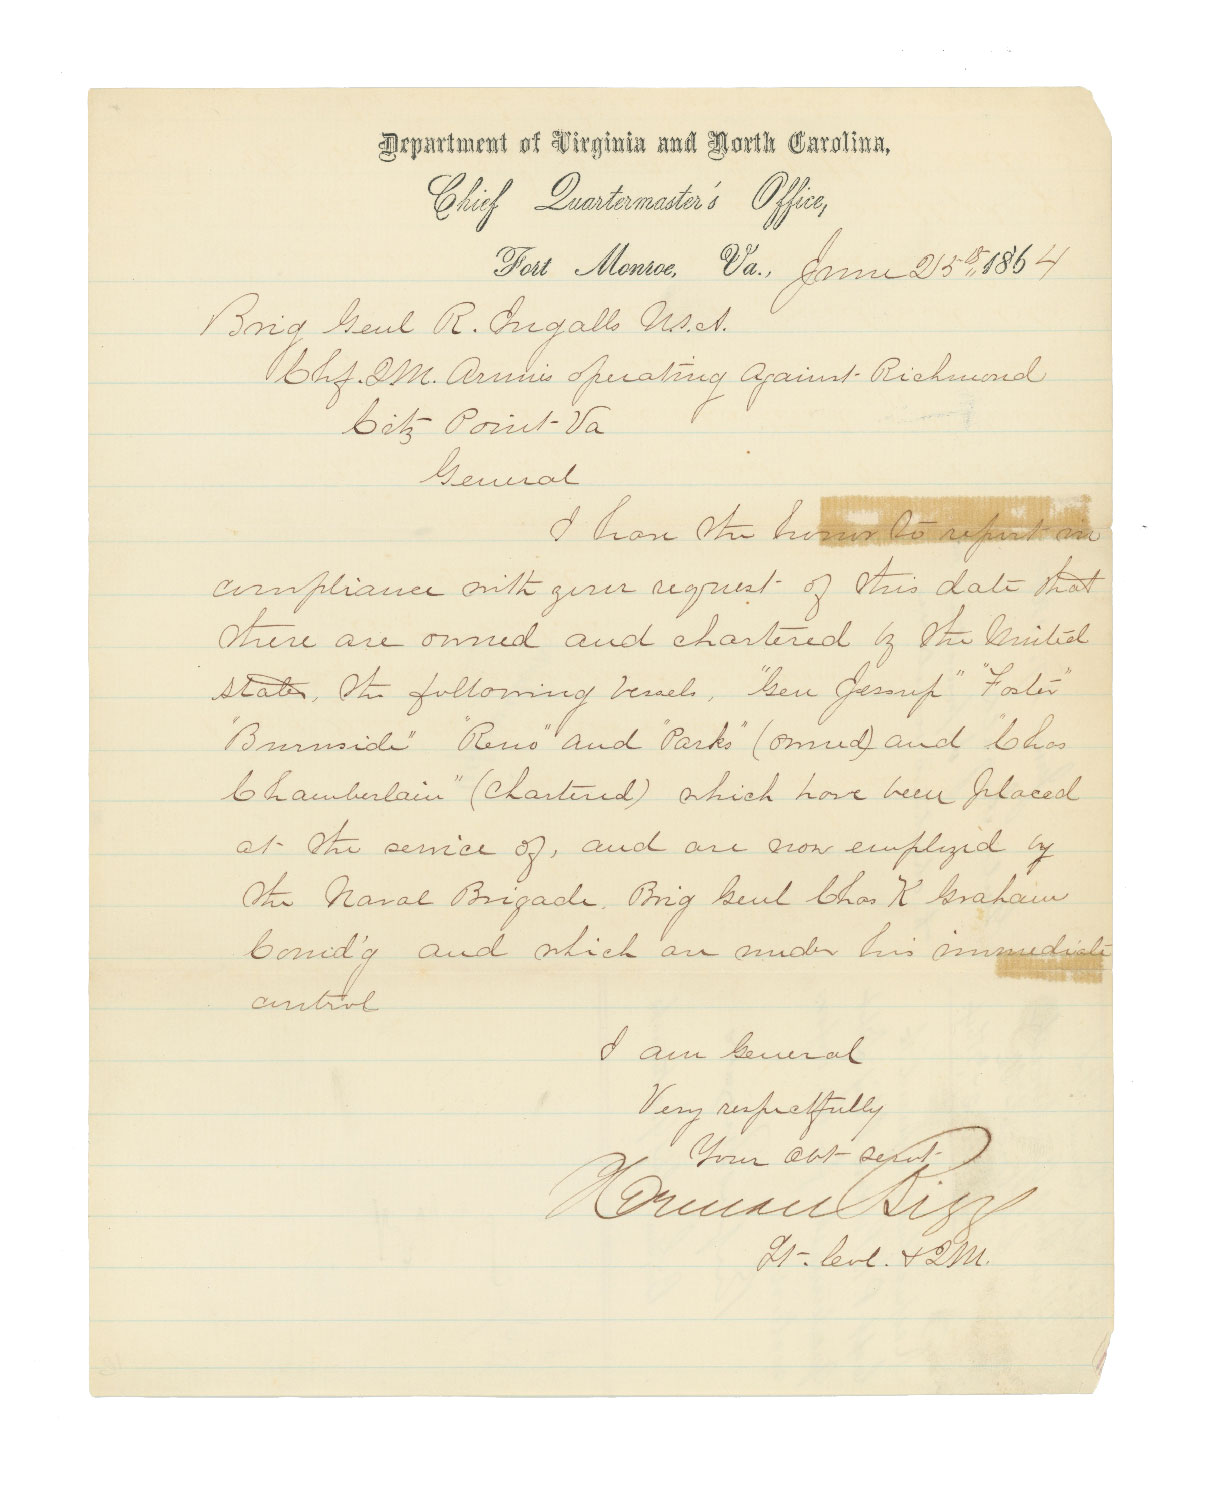 Department of Virginia and North Carolina,
Chief Quartermaster's Office,
Fort Monroe, Va., June 25th 1864
Brig Genl R. Ingalls U.S.A.
Chf. QM. Armies operating against Richmond
City Point Va
General
I have the honor to report in
compliance with your request of this date that
there are owned and chartered by the United
States, the following vessels, "Gen Jessup" "Foster"
"Burnside" "Reno" and "Parks" (owned) and "Chas
Chamberlain" (chartered) which have been placed
at the service of, and are now employed by
the Naval Brigade. Brig Genl Chas K Graham
Comd'g and which are under his immediate
control
I am General
Very respectfully
Your obt servt
Herman Biggs
Lt. Col. & QM.